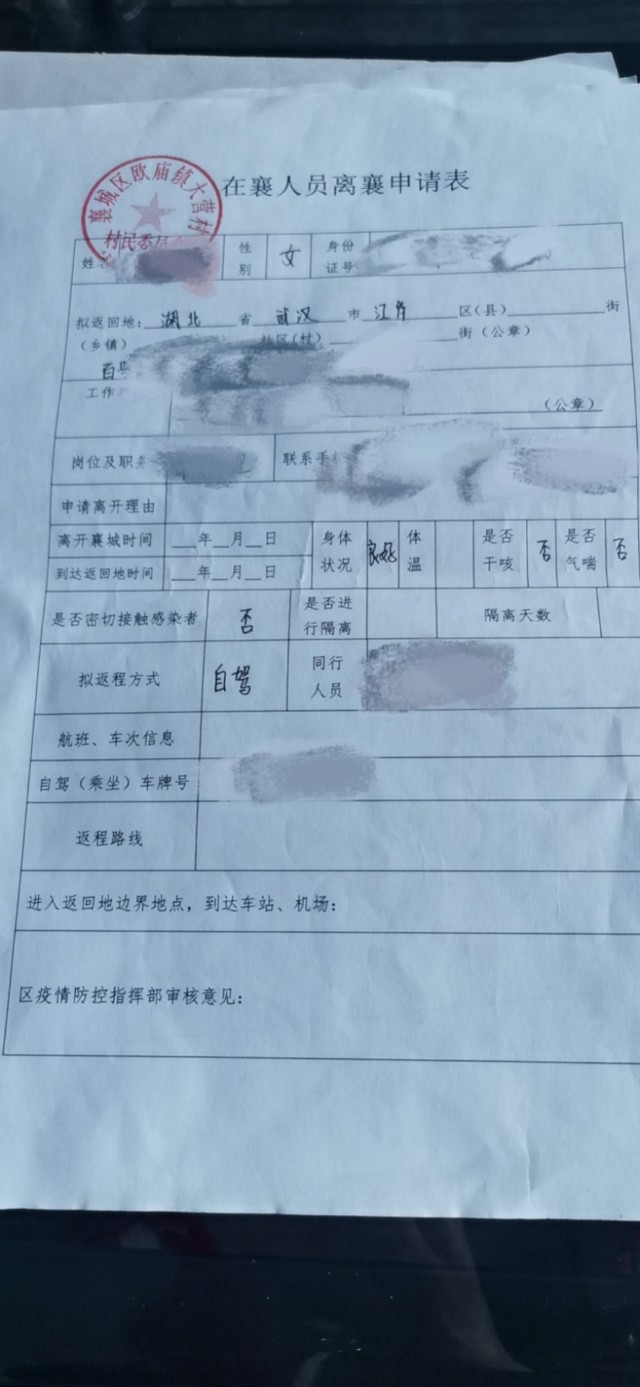 在襄人员离襄申请表
襄城区欧庙镇大营村
村民委员会
姓名 性别 女 身份证号
拟返回地：湖北省武汉市江岸区(县) 街
(乡镇) 社区(村) 街(公章)
工作
(公章)
岗位及职务 联系手
申请离开理由
离开襄城时间 __年__月__日 身体状况 良好 体温 是否干咳 否 是否气喘 否
到达返回地时间 __年__月__日
是否密切接触感染者 否 是否进行隔离 隔离天数
拟返程方式 自驾 同行人员
航班、车次信息
自驾（乘坐）车牌号
返程路线
进入返回地边界地点，到达车站、机场：
区疫情防控指挥部审核意见：